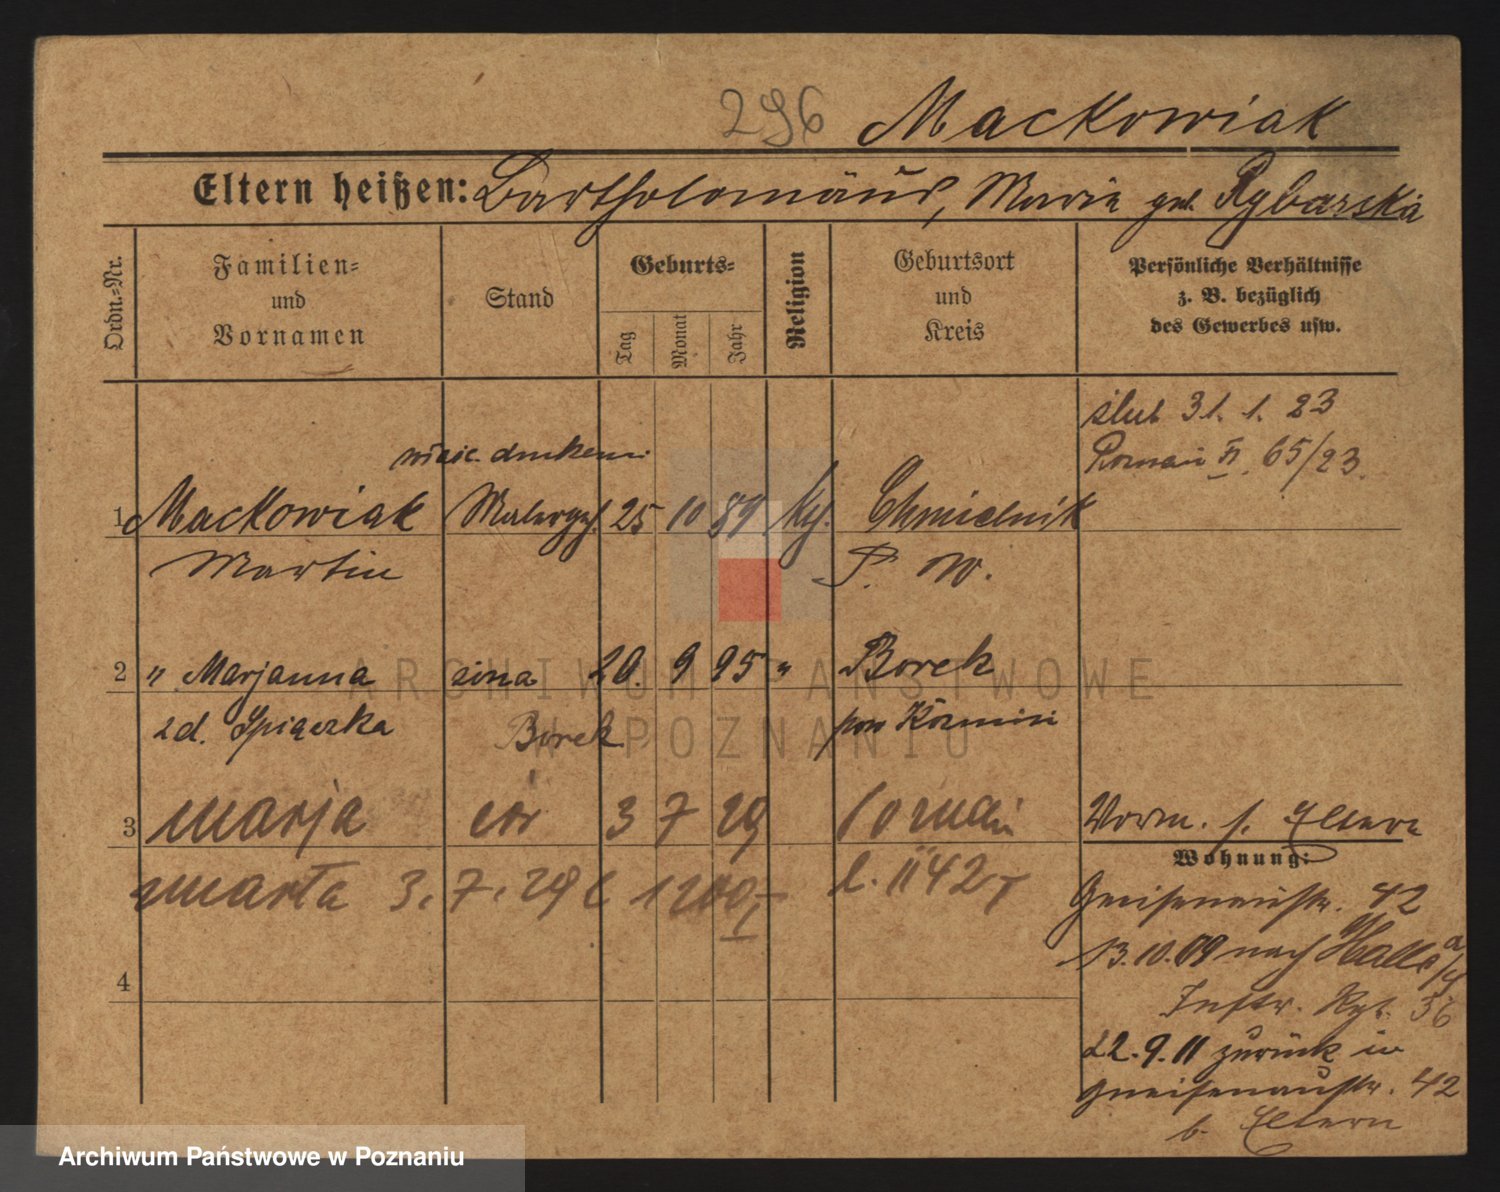 296 Mackowiak
Eltern heißen: Bartholomäus, Maria geb. Rybarska
Ordn.-Nr.
Familien-
und
Vornamen
Stand
Geburts-
Tag
Monat
Jahr
Religion
Geburtsort
und
Kreis
Persönliche Verhältnisse
z. B. bezüglich
des Gewerbes usw.
ślub 31. 1. 23
Poznań II. 65/23.
1 Mackowiak Malergeh. 25 10 89 kth. Chmielnik
Martin P. W.
2 " Marjanna żona 20. 9 95 " Borek
zd. Śpiączka Borek pow Koźmin
3 marja cór 3 7 29 Poznań
Vorm. s. Eltern
Wohnung:
marta 3. 7. 29
Gneisenaustr. 42
13. 10. 09 nach Halle a/S
Inftr. Rgt. 36
4
22. 9. 11 zurück in
Gneisenaustr. 42
b. Eltern
ARCHIWUM PAŃSTWOWE
W POZNANIU
Archiwum Państwowe w Poznaniu